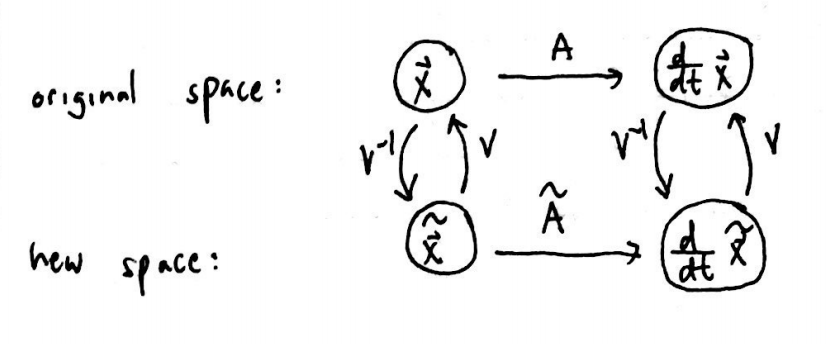 original space: x⃗ A d/dt x⃗
V⁻¹ V V⁻¹ V
new space: x̃⃗ Ã d/dt x̃⃗